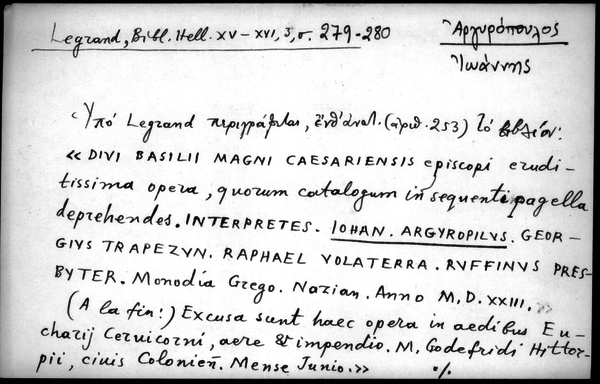 Legrand, Bibl. Hell. XV – XVI, 3, σ. 279-280
Ἀργυρόπουλος
Ἰωάννης
Ὑπό Legrand περιγράφεται, ἐνθ' ἀνωτ. (ἀριθ. 253) τό βιβλίον:
« DIVI BASILII MAGNI CAESARIENSIS episcopi erudi-
tissima opera, quorum catalogum in sequenti pagella
deprehendes. INTERPRETES. IOHAN. ARGYROPILVS. GEOR-
GIVS TRAPEZVN. RAPHAEL VOLATERRA. RVFFINVS PRES-
BYTER. Monodia Grego. Nazian. Anno M.D.XXIII.
(A la fin:) Excusa sunt haec opera in aedibus Eu-
charij Cervicorni, aere & impendio. M. Godefridi Hittor-
pii, civis Colonieñ. Mense Junio.»
·/.